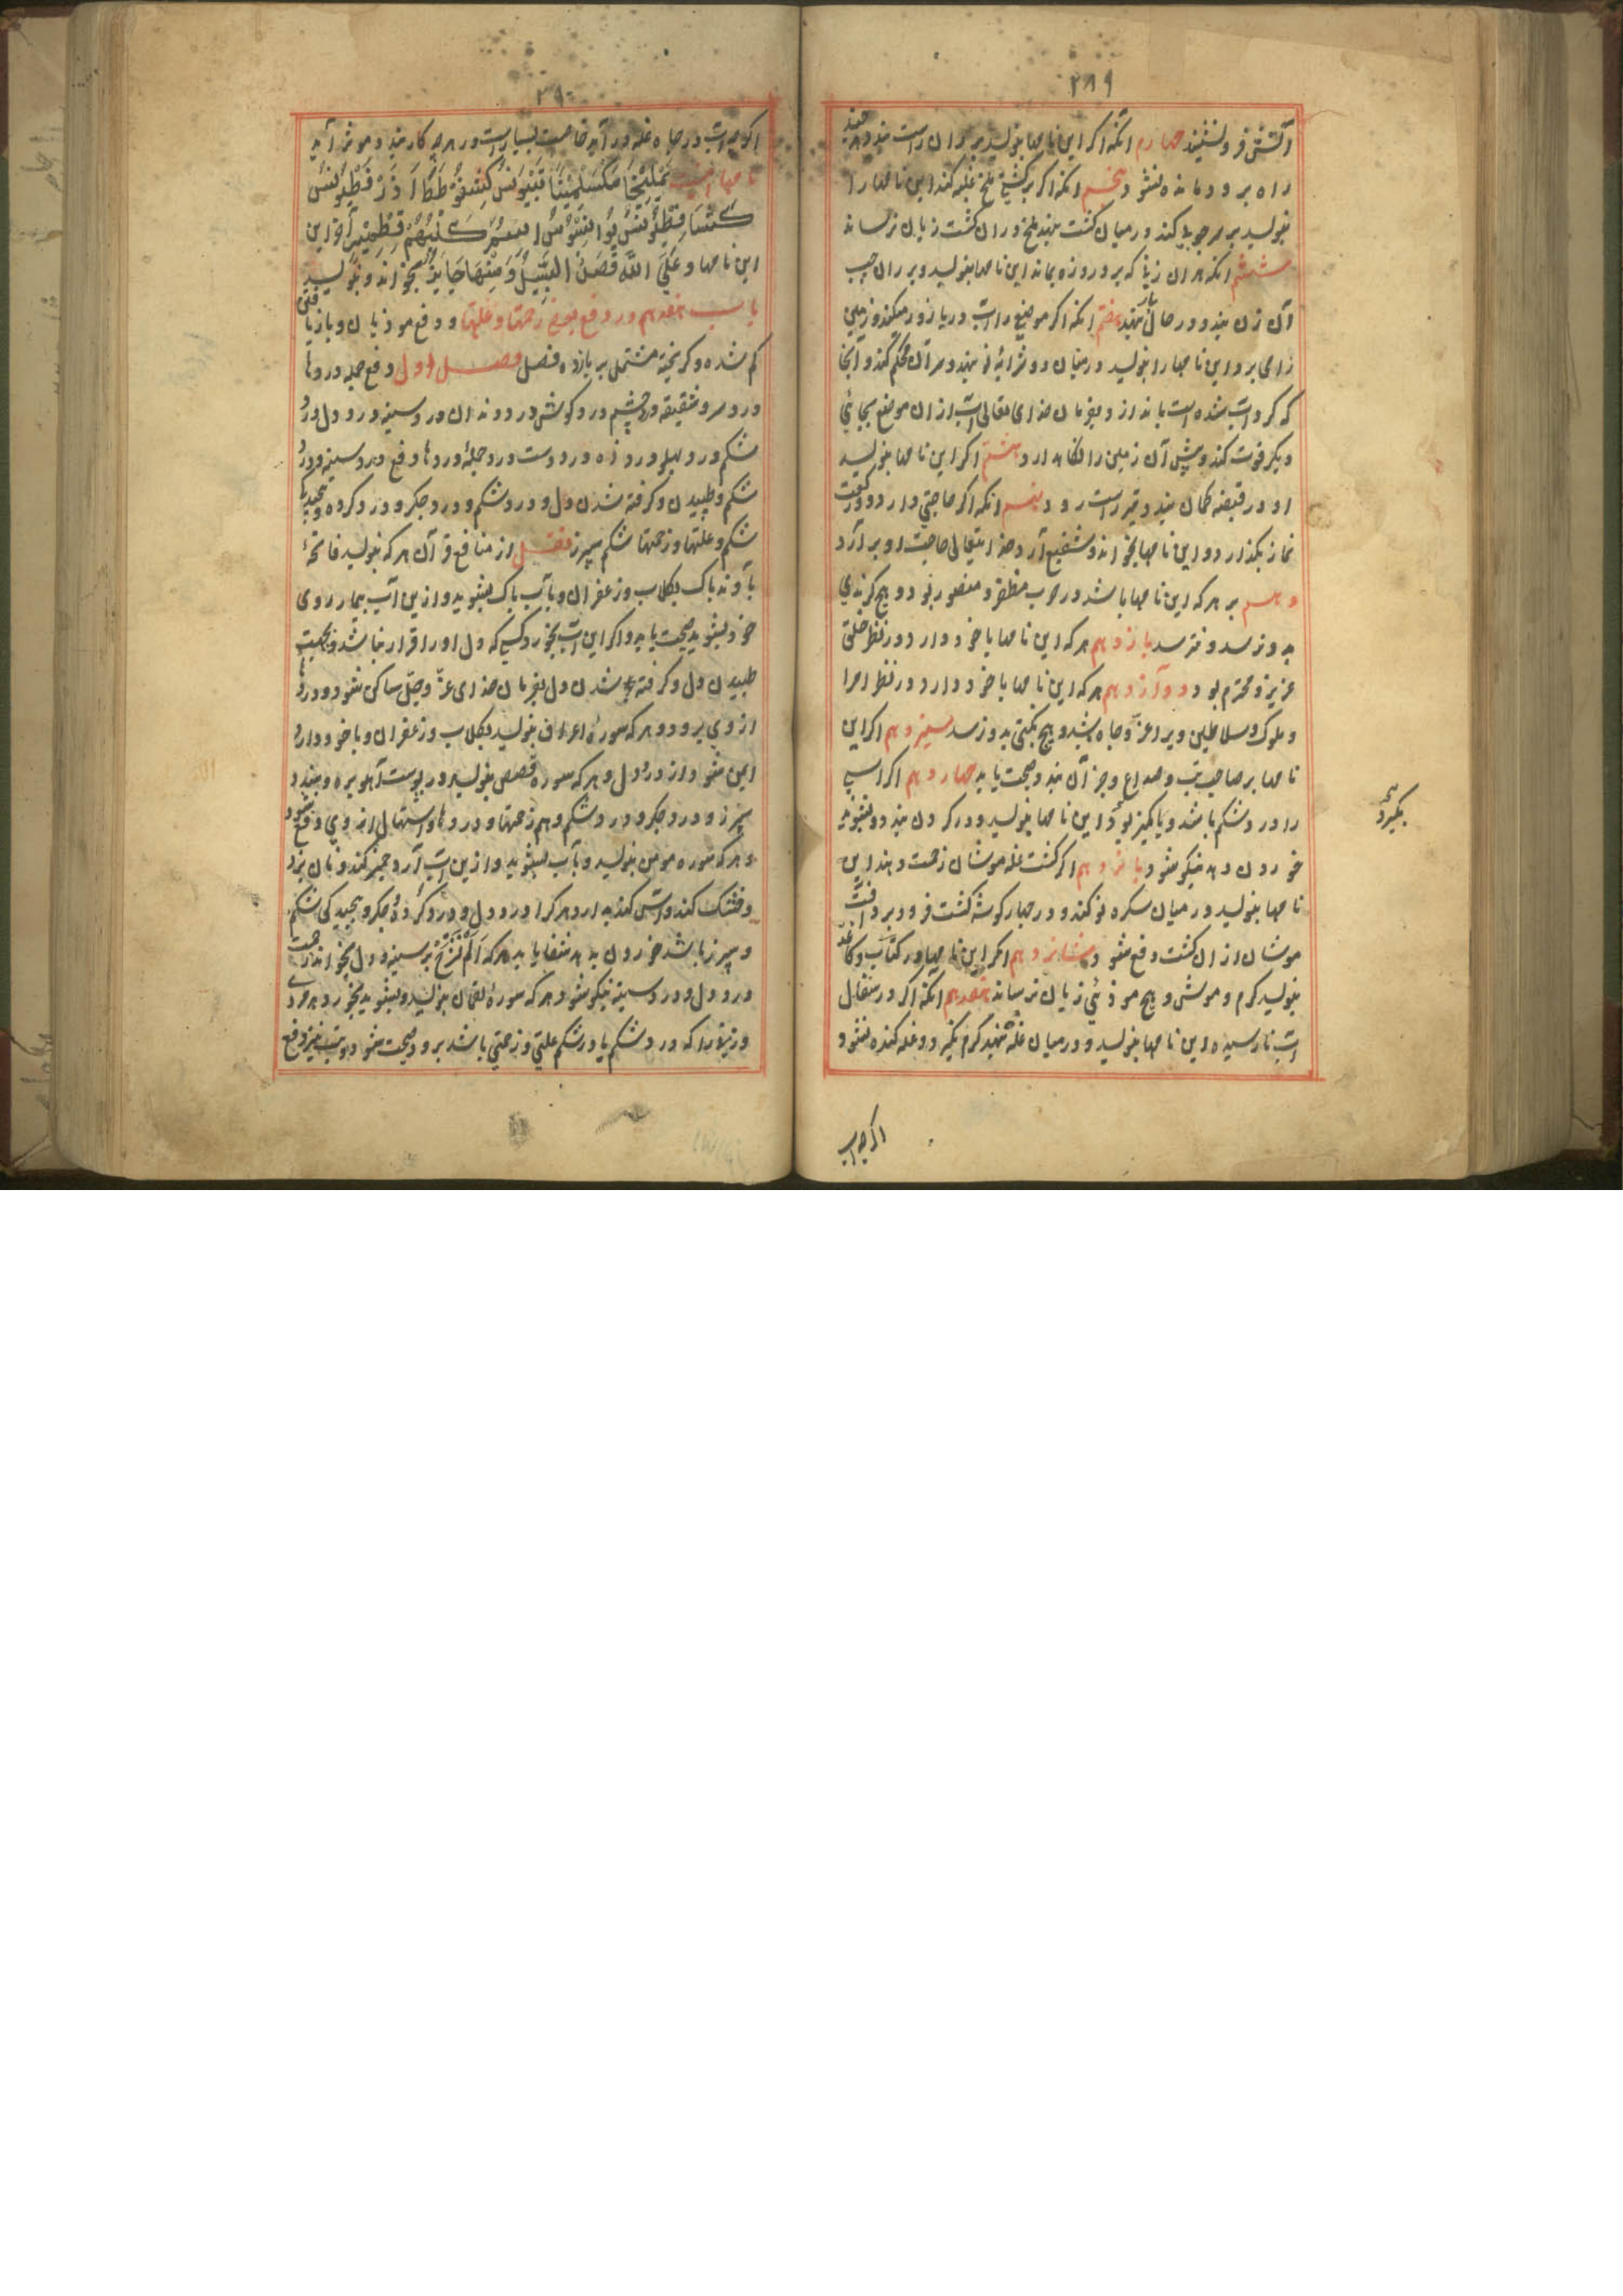 ۲۸۹
آتش فرو نشیند چهارم انکه اکر این نامها بنویسد بر ران راست بندد هر چند
راه برود مانده نشود پنجم انکه اکر بر کشتی ملخ غلبه کند این نامها را
بنویسد بر سر چوبی کند در میان کشت نهند ملخ در ان کشت زیان نرساند
ششم انکه هر ان زنی که بر در روزه بماند این نامها بنویسد و بر ران چپ
آن زن بندد در حال بار نهد هفتم انکه اکر موضع را اب دریا زور میکند و زمین
را می برد این نامها را بنویسد در میان دو شرابهٔ نو نهد و سر آن محکم کند و آنجا
که کرداب شده است باند ازد بفرمان خدای تعالی اب از ان موضع بجائی
دیکر قوت کند و پیش آن زمین را نکاهدارد هشتم اکر این نامها بنویسد
و در قبضه کمان بندد تیر راست رود نهم انکه اکر حاجتی دارد دو رکعت
نماز بکذارد و این نامها بخواند و شفیع آرد خدایتعالی حاجت او بر آرد
دهم بر هر که این نامها باشد در حرب مظفر و منصور بود و هیچ کزندی
بدو نرسد و نترسد یازدهم هر که این نامها با خود دارد در نظر خلق
عزیز و محترم بود دوآزدهم هر که این نامها با خود دارد در نظر امرا
و ملوک و سلاطین ویرا عز و جاه باشد و هیچ نکبتی بدو نرسد سیزدهم اکر این
نامها بر صاحب تب و صداع و جز آن بندد صحت یابد چهاردهم اکر اسپ
را درد شکم باشد و یا کمیز بود این نامها بنویسد و در کردن بندد و بشوید
خوردن دهد نیکو شود پانزدهم اکر کشت غله موشان زحمت دهند این
نامها بنویسد در میان سکره نو کند و در چهار کوشه کشت فرو برد آفت
موشان از ان کشت دفع شود شانزدهم اکر این نامها در کتاب و کاغذ
بنویسد کرم و موش و هیچ موذئی زیان نرساند هفدهم انکه اکر در سفال
اب نارسیده این نامها بنویسد و در میان غله نهد کرم نکیرد و غله کنده نشود
بکیرد
اکر چه اب
۲۹۰
اکر چه اب در چاه غله در آید خاصیت بسیار است در هر چه کار بندد موثر آید
نامها اینست یَمْلِیخَا مَکْسَلْمِینَا
این نامها وَعَلَی اللّهِ قَصْدُ السَّبِیلِ وَمِنْهَا جَایِرٌ بخواند و بنویسد
باب هفدهم در دفع بعضی زحمتها و علتها و دفع موذیان و باز یافتن
کم شده و کریخته مشتمل بر یازده فصل فصل اول دفع جمله دردها
درد سر و شقیقه و درد چشم درد کوش درد دندان درد سینه درد دل درد
شکم درد پهلو درد زه درد دست درد جملهٔ دردها دفع درد سینه و درد
شکم و طپیدن و کرفته شدن دل و درد شکم و درد جکر و درد کرده و پیچیدن
شکم و علتها و زحمتها شکم سپرز فصل از منافع قرآن هر که بنویسد فاتحهٔ
بآوند پاک بکلاب و زعفران و بآب پاک بشوید و از ین آب بیمار روی
خود بشوید صحت یابد و اکر این اب بخورد کسی که دل او را قرار نباشد و بجهت
طپیدن دل و کرفته شدن دل بفرمان خدای عزّ و جلّ ساکن شود و دردها
از وی برود و هر که سورهٔ اعراف بنویسد بکلاب و زعفران و با خود دارد
ایمن شود از درد دل و هر که سوره قصص بنویسد در پوست آهو بره و بندد
سپرز و درد جکر و درد شکم و هم زحمتها و دردها و استهال از وی دفع شود
و هر که سوره مومن بنویسد و بآب بشوید و از ین اب آرد خمیر کند و نان پزد
و خشک کند و آس کند بدارد هر کرا درد دل و درد کرده و جکر و پیچیدکی شکم
و سپرز باشد خوردن بدهد شفا یابد هر که اَلَمْ نَشْرَحْ بر سینه و دل بخواند جهت
درد دل و درد سینه نیکو شود هر که سورهٔ لقمان بنویسد و بشوید بخورد هر مردی
و زنی را که درد شکم یا در شکم علتی و زحمتی باشد برود و صحت شود و تب نیز دفع